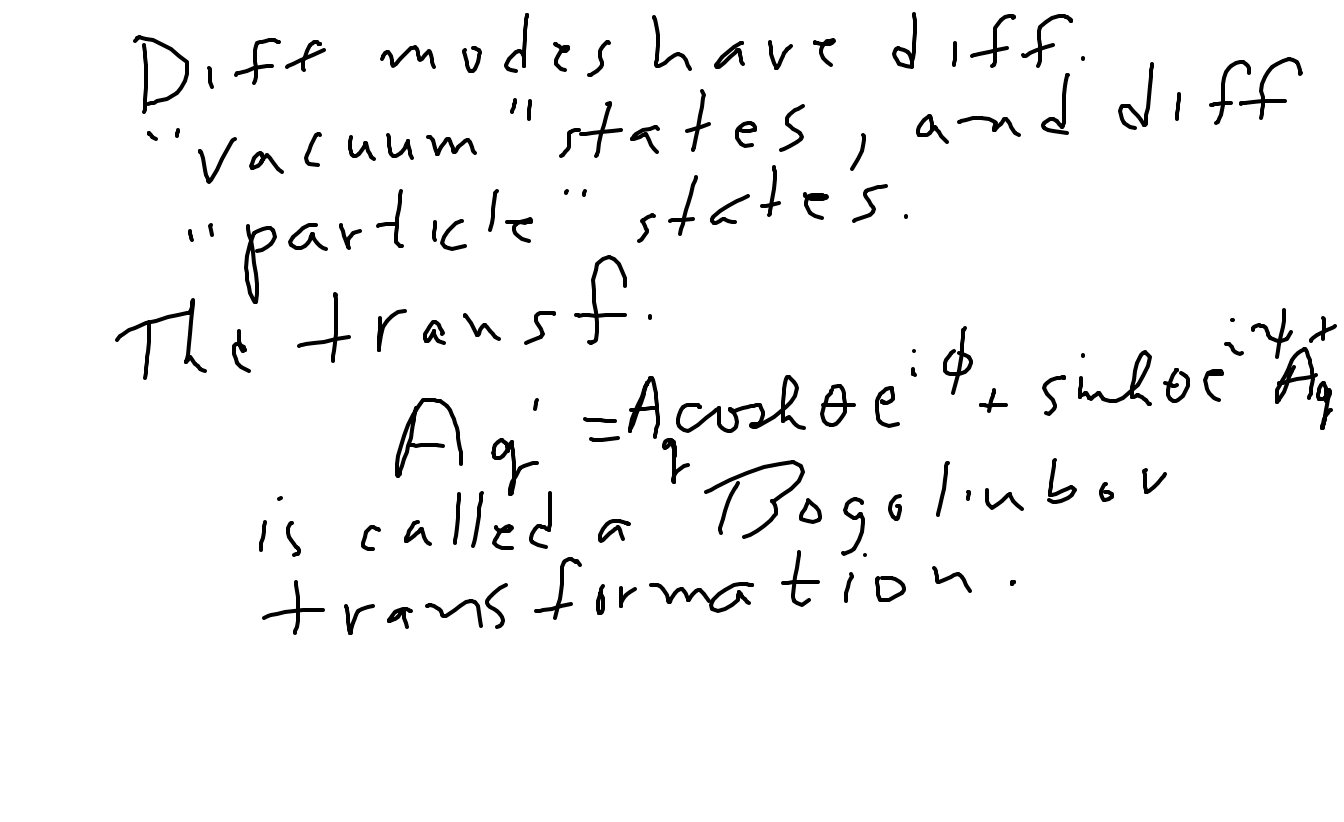 Diff modes have diff.
"vacuum" states, and diff
"particle" states.
The transf.
A_q' = A_q coshθ e^{iϕ} + sinhθ e^{iψ} A_q^+
is called a Bogoliubov
transformation.